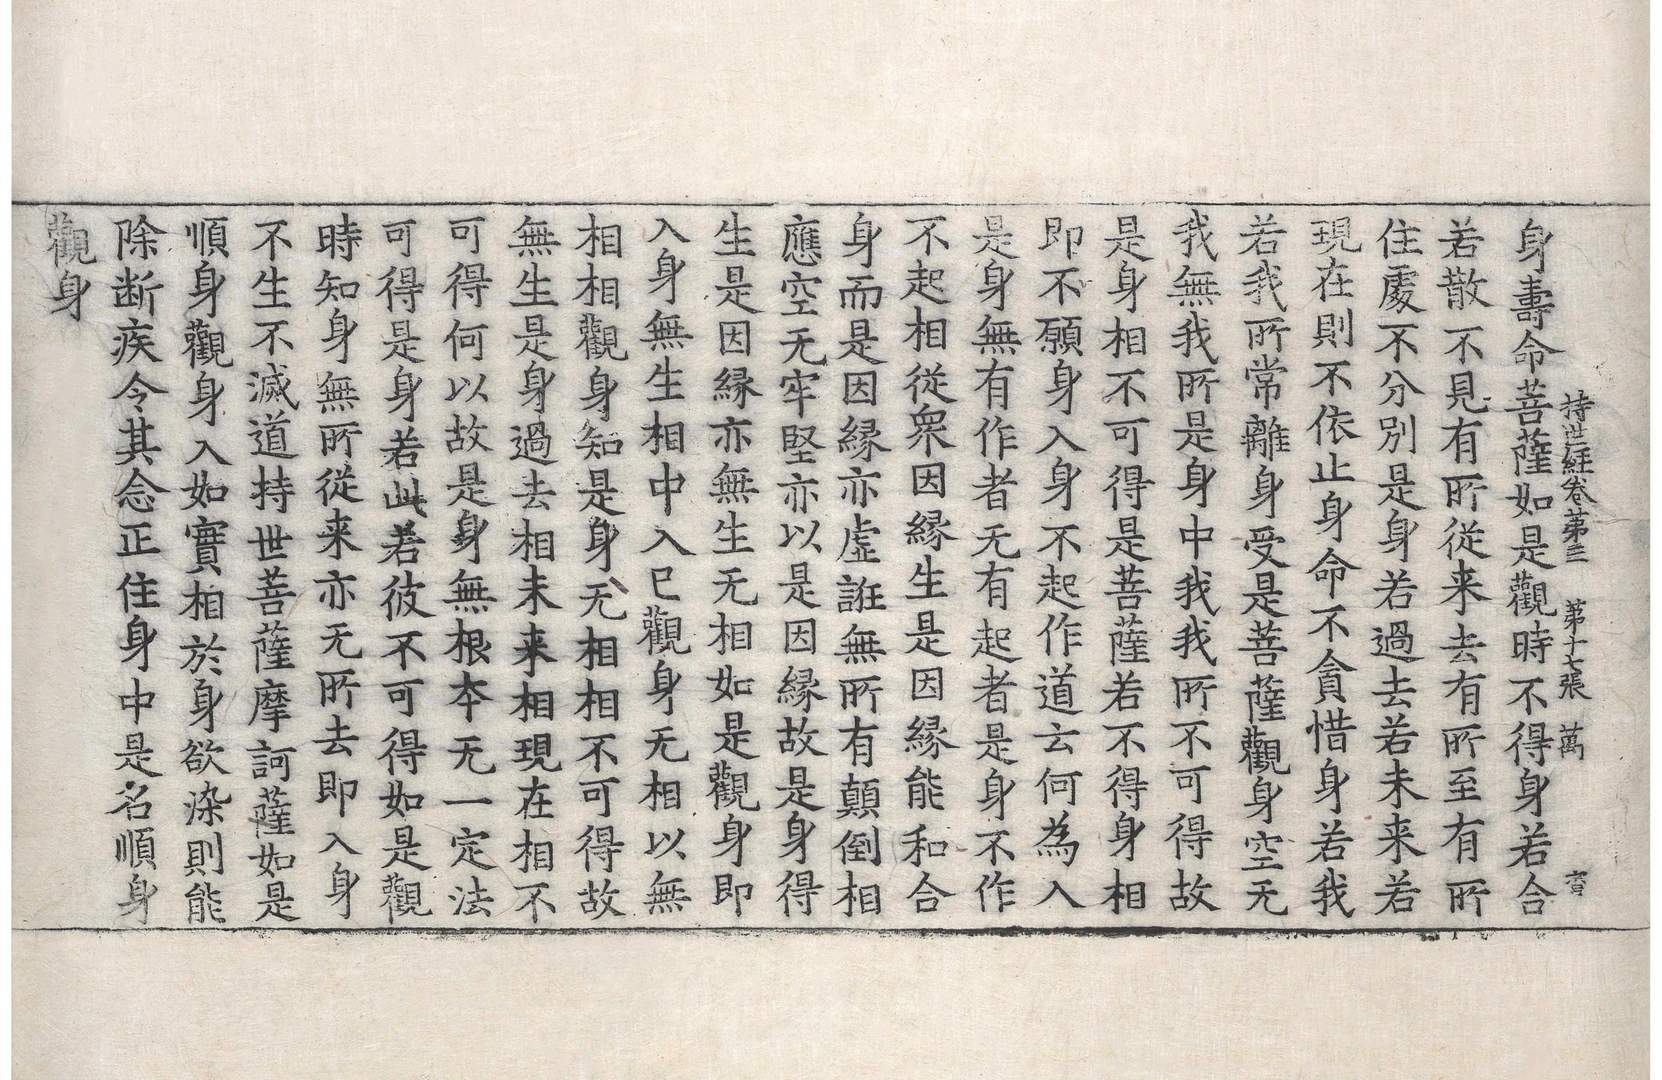 持世経卷苐三　苐十七張　萬
身壽命菩薩如是觀時不得身若合
若散不見有所從来去有所至有所
住處不分別是身若過去若未来若
現在則不依止身命不貪惜身若我
若我所常離身受是菩薩觀身空无
我無我所是身中我我所不可得故
是身相不可得是菩薩若不得身相
即不願身入身不起作道云何為入
是身無有作者无有起者是身不作
不起相從衆因縁生是因縁能和合
身而是因縁亦虛誑無所有顛倒相
應空无牢堅亦以是因縁故是身得
生是因縁亦無生无相如是觀身即
入身無生相中入已觀身无相以無
相相觀身知是身无相相不可得故
無生是身過去相未来相現在相不
可得何以故是身無根本无一定法
可得是身若此若彼不可得如是觀
時知身無所從来亦无所去即入身
不生不滅道持世菩薩摩訶薩如是
順身觀身入如實相於身欲染則能
除断疾令其念正住身中是名順身
觀身